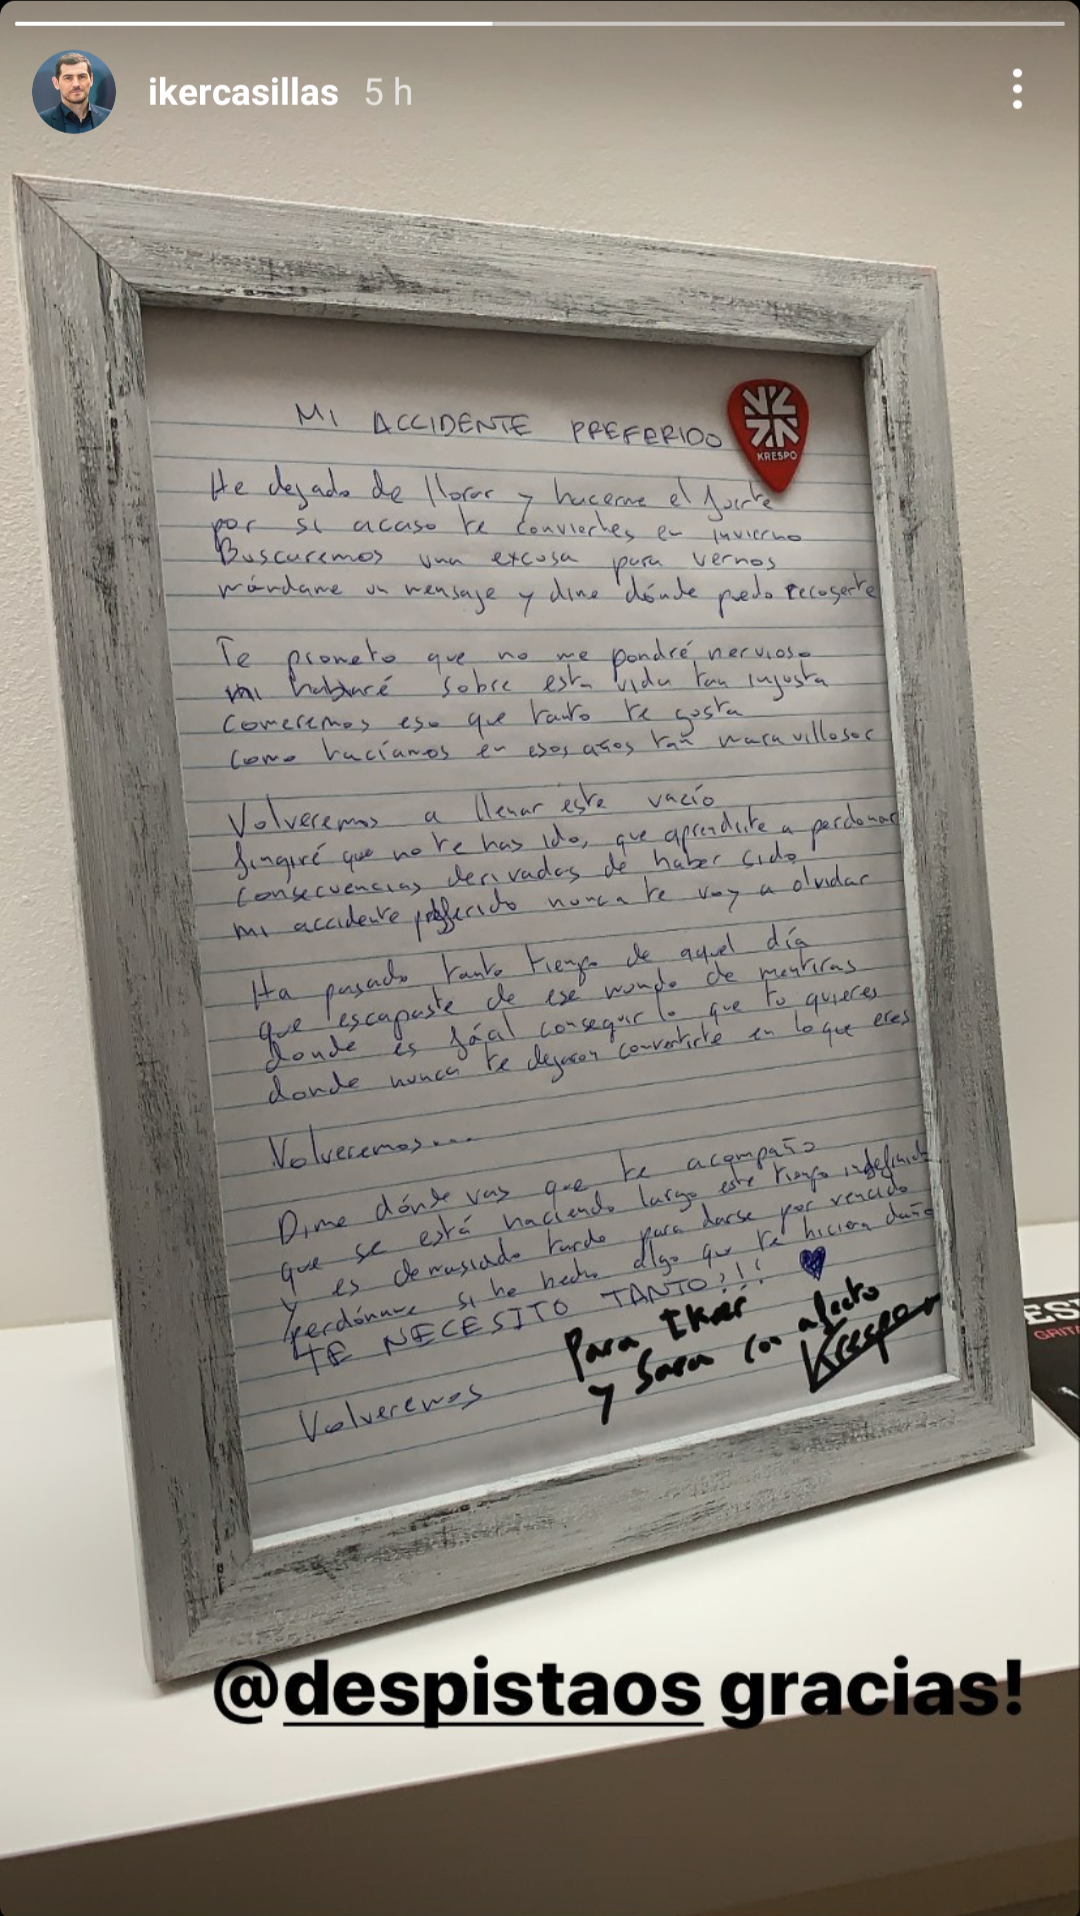 ikercasillas 5 h
MI ACCIDENTE PREFERIDO
KRESPO
He dejado de llorar y hacerme el fuerte
por si acaso te conviertes en invierno
Buscaremos una excusa para vernos
mándame un mensaje y dime dónde puedo recogerte
Te prometo que no me pondré nervioso
ni hablaré sobre esta vida tan injusta
comeremos eso que tanto te gusta
como hacíamos en esos años tan maravillosos
Volveremos a llenar este vacío
fingiré que no te has ido, que aprendiste a perdonar
consecuencias derivadas de haber sido
mi accidente preferido nunca te voy a olvidar
Ha pasado tanto tiempo de aquel día
que escapaste de ese mundo de mentiras
donde es fácil conseguir lo que tu quieres
donde nunca te dejaron convertirte en lo que eres
Volveremos...
Dime dónde vas que te acompaño
que se está haciendo largo este tiempo indefinido
y es demasiado tarde para darse por vencido
perdóname si he hecho algo que te hiciera daño
TE NECESITO TANTO!!!
Para Iker
y Sara con afecto
Krespo
Volveremos
ES
GRITA
@despistaos gracias!